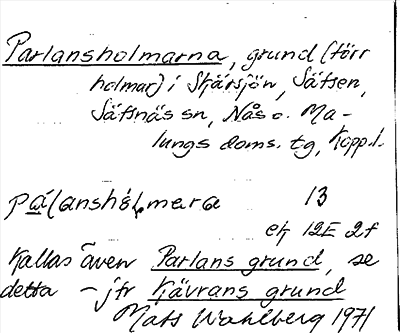 Parlansholmarna, grund (förr
holmar) i Skärsjön, Säfsen,
Säfsnäs sn, Nås o. Ma-
lungs doms. tg, Kopp. l.
13
ek 12E 2f
Kallas även Parlans grund, se
detta - jfr Kävrans grund
Mats Wahlberg 1971